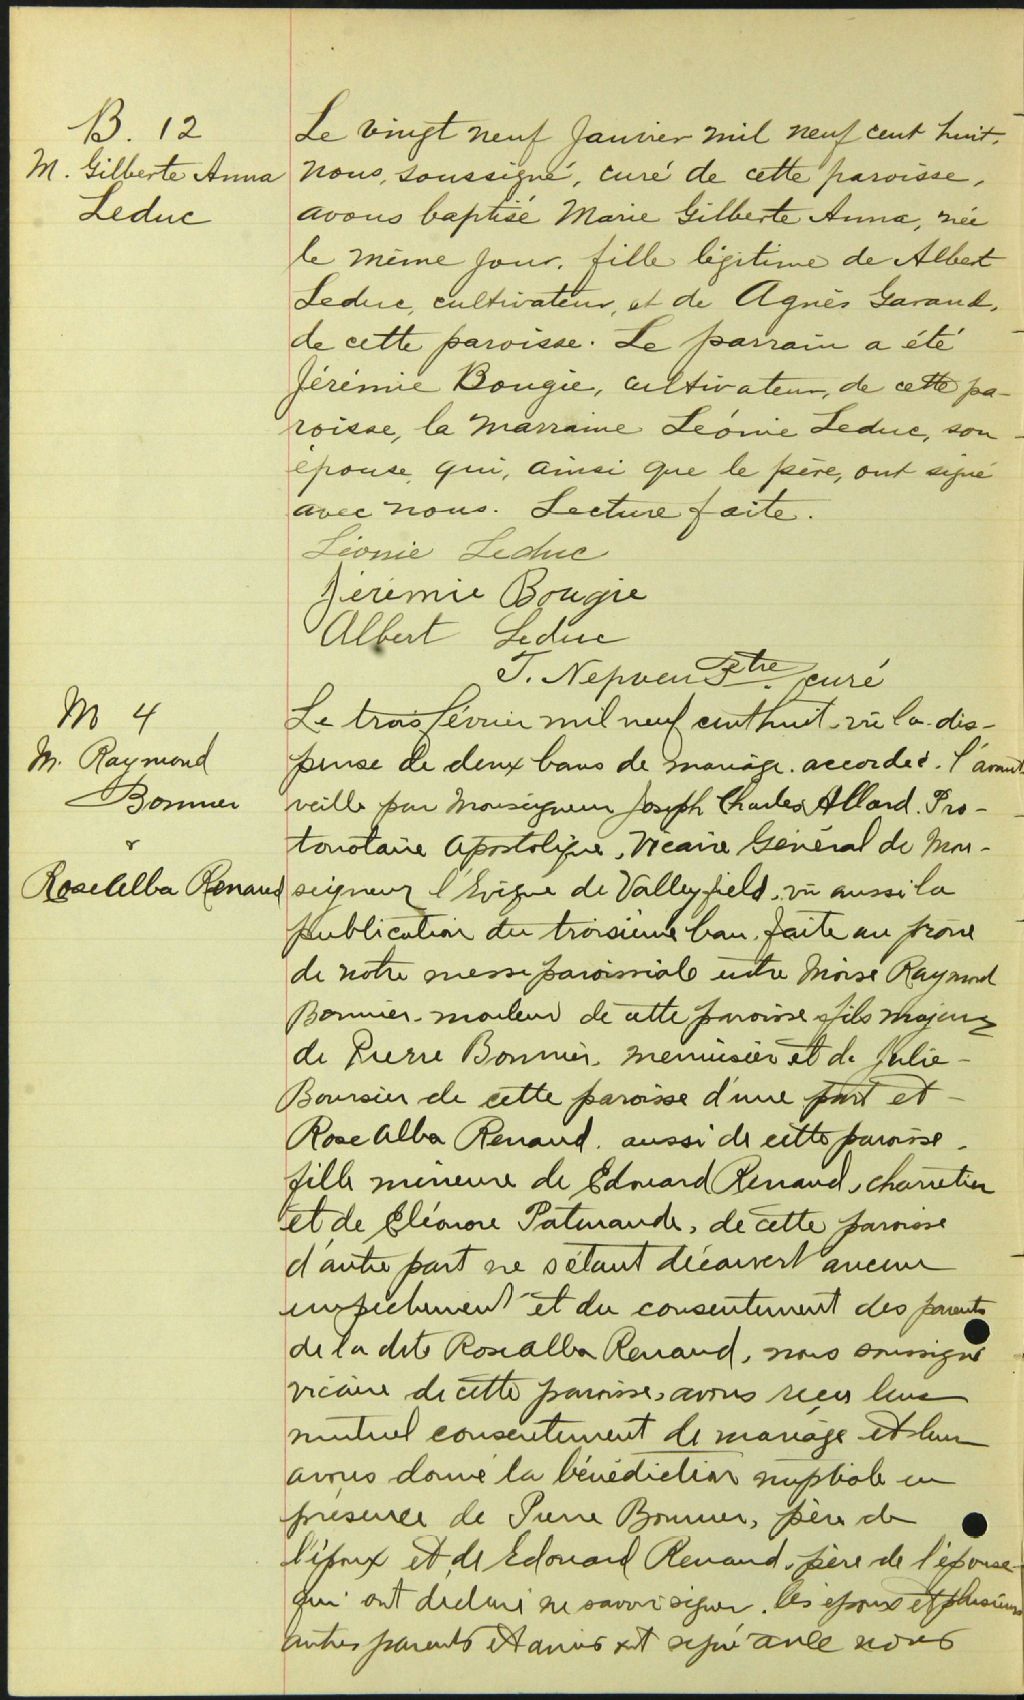 B. 12
M. Gilberte Anna
Leduc
Le vingt neuf Janvier mil neuf cent huit,
nous, soussigné, curé de cette paroisse,
avons baptisé Marie Gilberte Anna, née
le même jour, fille légitime de Albert
Leduc, cultivateur, et de Agnès Garand,
de cette paroisse. Le parrain a été
Jérémie Bougie, cultivateur, de cette pa-
roisse, la marraine Léonie Leduc, son
épouse, qui, ainsi que le père, ont signé
avec nous. Lecture faite.
Léonie Leduc
Jérémie Bougie
Albert Leduc
T. Nepveu Ptre curé
M 4
M. Raymond
Bonnier
&
Rose Alba Renaud
Le trois février mil neuf cent huit, vû la dis-
pense de deux bans de mariage accordée l'avant
veille par Monseigneur Joseph Charles Allard. Pro-
tonotaire Apostolique, Vicaire Général de Mon-
seigneur l'Evêque de Valleyfield, vû aussi la
publication du troisième ban faite au prône
de notre messe paroissiale entre Moïse Raymond
Bonnier, mouleur de cette paroisse fils majeur
de Pierre Bonnier, menuisier et de Julie
Boursier de cette paroisse d'une part et
Rose Alba Renaud aussi de cette paroisse,
fille mineure de Edouard Renaud, charretier
et de Eléonore Patenaude, de cette paroisse
d'autre part ne s'étant découvert aucun
empêchement et du consentement des parents
de la dite Rose Alba Renaud, nous soussigné
vicaire de cette paroisse, avons reçu leur
mutuel consentement de mariage et leur
avons donné la bénédiction nuptiale en
présence de Pierre Bonnier, père de
l'époux et de Edouard Renaud, père de l'épouse
qui ont déclaré ne savoir signer. les époux et plusieurs
autres parents et amis ont signé avec nous